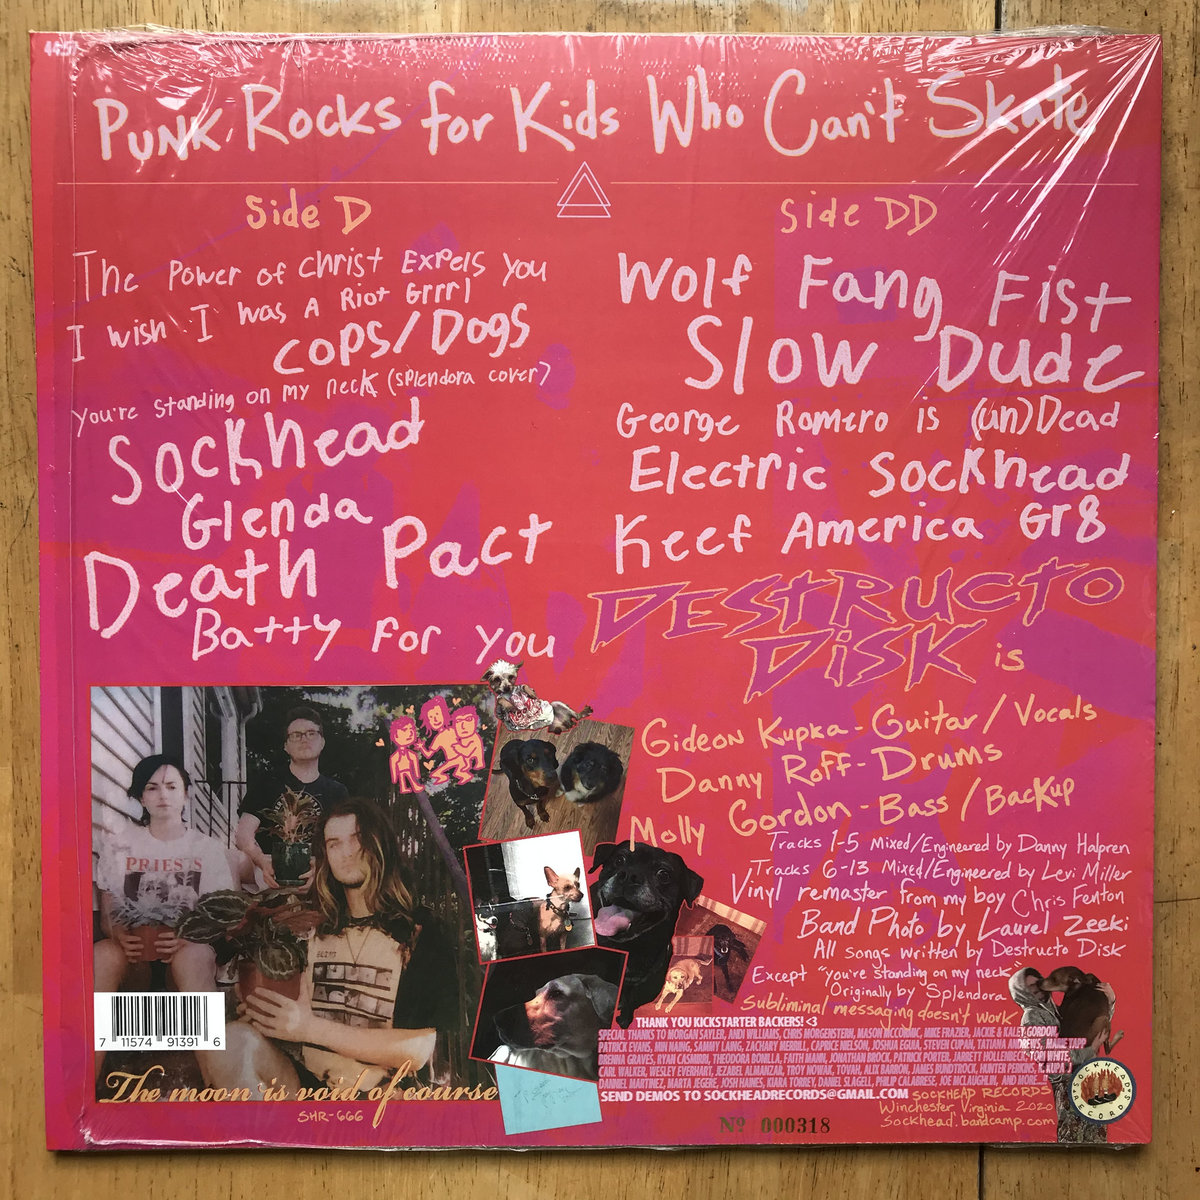 4457
Punk Rocks for Kids Who Can't Skate
Side D
The Power of Christ Expels You
I wish I was A Riot Grrrl
Cops/Dogs
You're standing on my neck (splendora cover)
Sockhead
Glenda
Death Pact
Batty For you
Side DD
Wolf Fang Fist
Slow Dude
George Romero is (un)Dead
Electric Sockhead
Keef America Gr8
DESTRUCTO
DISK is
Gideon Kupka - Guitar / Vocals
Danny Roff - Drums
Molly Gordon - Bass / Backup
Tracks 1-5 Mixed/Engineered by Danny Halpren
Tracks 6-13 Mixed/Engineered by Levi Miller
Vinyl remaster from my boy Chris Fenton
Band Photo by Laurel Zeeki
All songs written by Destructo Disk
Except "you're standing on my neck"
Originally by Splendora
Subliminal messaging doesn't work
PRIESTS
THANK YOU KICKSTARTER BACKERS! <3
SPECIAL THANKS TO MORGAN SAYLER, ANDI WILLIAMS, CHRIS MORGENSTERN, MASON MCCOMIC, MIKE FRAZIER, JACKIE & KALEY GORDON,
PATRICK EVANS, MIN NAING, SAMMY LAING, ZACHARY MERRILL, CAPRICE NIELSON, JOSHUA EGUIA, STEVEN CUPAN, TATIANA ANDREWS, MARIE TAPP
BRENNA GRAVES, RYAN CASMIRRI, THEODORA BONILLA, FAITH MANN, JONATHAN BROCK, PATRICK PORTER, JARRETT HOLLENBECK, TORI WHITE,
CARL WALKER, WESLEY EVERHART, JEZABEL ALMANZAR, TROY NOWAK, TOVAH, ALIX BARRON, JAMES BUNDTROCK, HUNTER PERKINS, T. KUPA J
DANNIEL MARTINEZ, MARTA JEGERE, JOSH HAINES, KIARA TORREY, DANIEL SLAGELL, PHILIP CALABRESE, JOE MCLAUGHLIN, AND MORE...!!
SEND DEMOS TO SOCKHEADRECORDS@GMAIL.COM
SOCKHEAD RECORDS
Winchester, Virginia 2020
Sockhead.bandcamp.com
SOCKHEAD RECORDS
Nº 000318
7 11574 91391 6
The moon is void of course
SHR-666